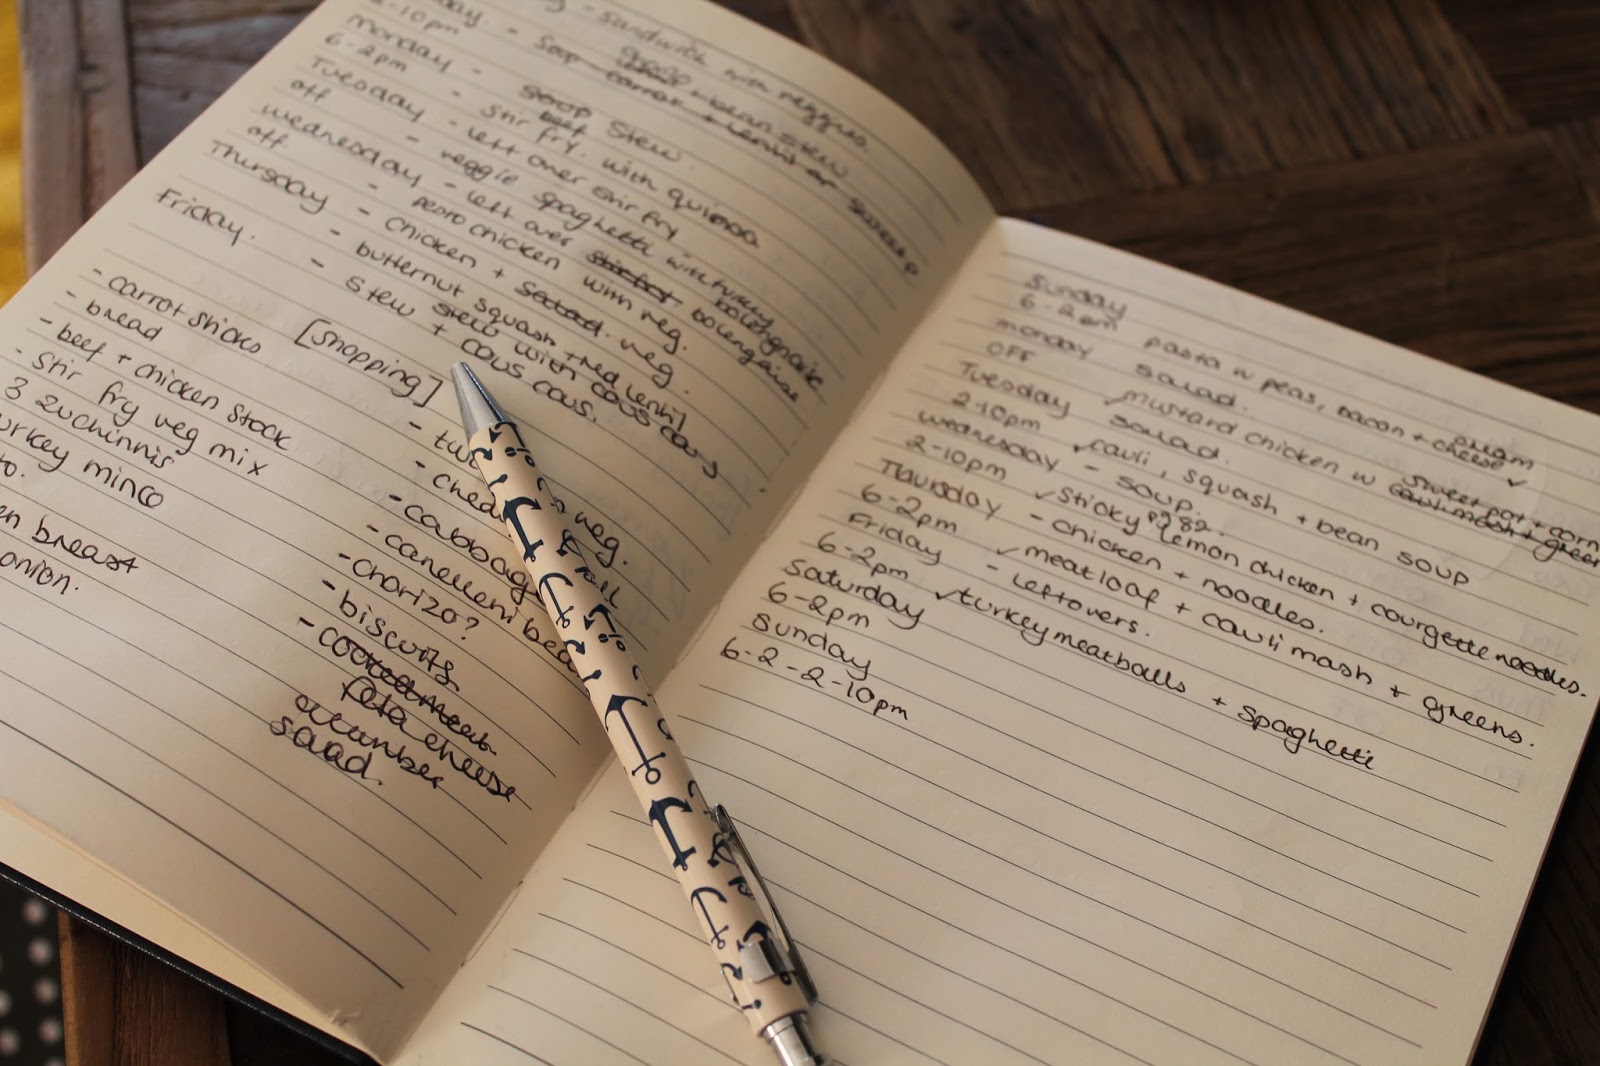 day. - sandwich with veggies.
2-10pm - soup + bean stew
soup - carrot + lentil or sweet p
Monday - soup stew.
6-2pm - beef stir fry. with quinoa
Tuesday - left over stir fry
off - veggie spaghetti with turkey bolognaise
Wednesday - left over stir fry bolengaise
off - pesto chicken with veg.
Thursday - chicken + salad. veg.
- butternut squash + red lentil
stew with cous cous
Friday. - stew + cous cous.
[Shopping]
- carrot sticks
- bread
- beef + chicken stock
- stir fry veg mix
3 zuchinnis
urkey mince
to.
en breast
onion.
veg.
- cabbage
- cannelleni bea
- chorizo?
- biscuits
- cooked meat.
feta cheese
cucumber
salad.
Sunday
6-2pm pasta w peas, bacon + cream cheese ✓
Monday salad.
OFF ✓ mustard chicken w sweet pot + corn
cauli mash + green
Tuesday salad.
2-10pm ✓ cauli, squash + bean soup
Wednesday - soup.
2-10pm ✓ sticky lemon chicken + courgette noodles.
pg 82.
Thursday - chicken + noodles.
6-2pm ✓ meatloaf + cauli mash + greens.
Friday - leftovers.
6-2pm ✓ turkey meatballs + spaghetti
Saturday
6-2pm
Sunday
6-2-2-10pm